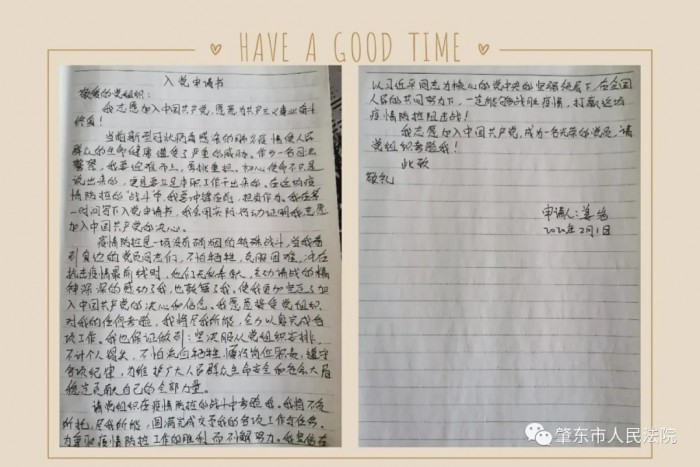 HAVE A GOOD TIME
入党申请书
敬爱的党组织：
我志愿加入中国共产党，愿意为共产主义事业奋斗
终身！
当前新型冠状病毒感染的肺炎疫情使人民
群众的生命健康遭受了严重的威胁。作为一名司法
警察，我要迎难而上，勇挑重担。初心使命不只是
说出来的，更是要立足本职工作干出来的。在这场疫
情防控的"战斗"中，我要冲锋在前，担当作为。我在第
一时间写下入党申请书，我会用实际行动证明我志愿
加入中国共产党的决心。
疫情防控是一场没有硝烟的特殊战斗，当我看
到身边的党员同志们，不怕牺牲，克服困难，冲在
抗击疫情最前线时，他们无私奉献，主动请战的精
神深深的感动了我，也鼓舞了我。使我更加坚定了加
入中国共产党的决心和信念。我愿意接受党组织
对我的任何考验，我将尽我所能，全力以赴完成各
项工作。我也保证做到：坚决服从党组织安排，
不计个人得失，不怕流血牺牲，履行岗位职责，遵守
各项纪律，为维护广大人民群众生命安全和社会大局
稳定贡献自己的全部力量。
请党组织在疫情防控的战斗中考验我。我将不负
所托，尽我所能，圆满完成交给我的各项工作和任务，
为重取疫情防控工作的胜利而不懈努力。我坚信在
以习近平同志为核心的党中央的坚强领导下，在全国
人民的共同努力下，一定能够战胜疫情，打赢这场
疫情防控阻击战！
我志愿加入中国共产党，成为一名光荣的党员，请
党组织考验我！
此致
敬礼
申请人：姜
2020年2月1日
肇东市人民法院